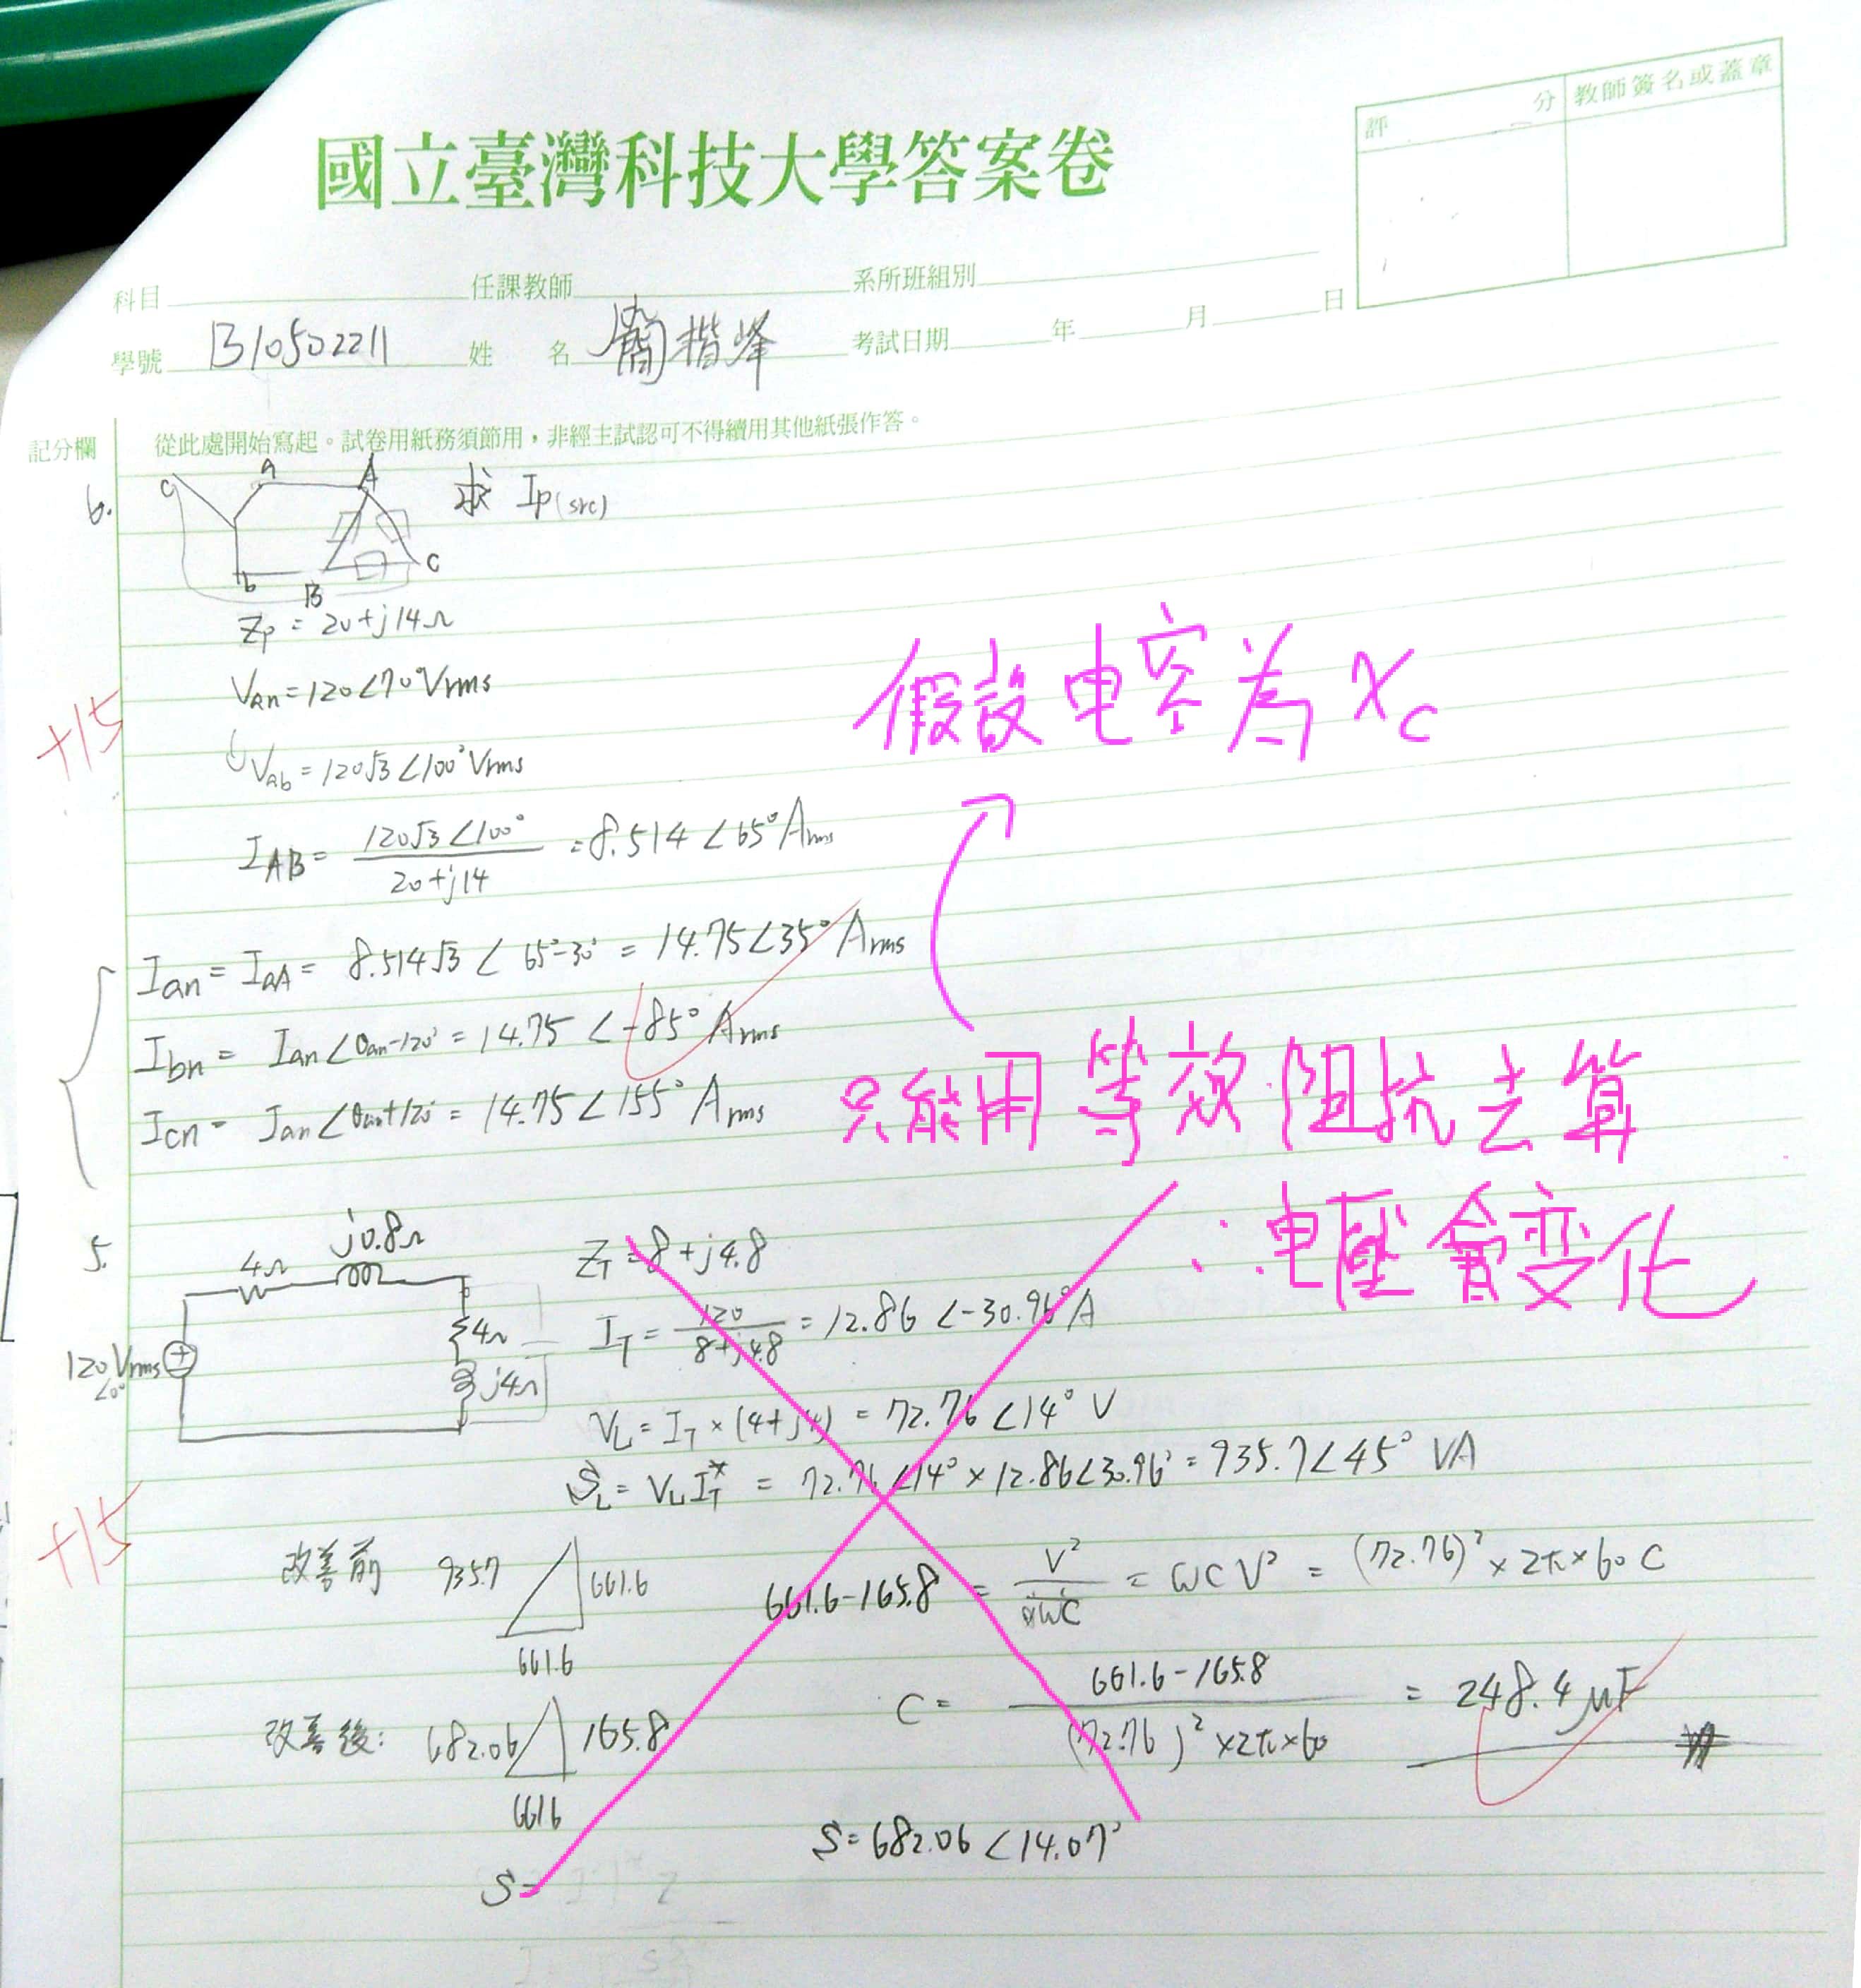 評 分 教師簽名或蓋章
國立臺灣科技大學答案卷
科目 任課教師 系所班組別
學號 B10502211 姓 名 簡楷峰 考試日期 年 月 日
記分欄 從此處開始寫起。試卷用紙務須節用,非經主試認可不得續用其他紙張作答。
6. c a A 求 Ip(src)
b B C
Zp = 20+j14Ω
Van=120∠70°Vrms
假設电容為 Xc
+15
Vab=120√3∠100°Vrms
IAB= 120√3∠100° / 20+j14 = 8.514∠65°Arms
Ian = IaA = 8.514√3∠65°-30° = 14.75∠35°Arms
Ibn = Ian∠θan-120° = 14.75∠-85°Arms
Icn = Ian∠θan+120° = 14.75∠155°Arms
只能用等效阻抗去算
∵电壓會变化
5. 4Ω j0.8Ω
ZT = 8+j4.8
4Ω
j4Ω
120Vrms
∠0°
IT = 120 / 8+j4.8 = 12.86∠-30.96°A
VL = IT×(4+j4) = 72.76∠14° V
SL = VL IT* = 72.76∠14°×12.86∠30.96° = 935.7∠45° VA
+15
改善前 935.7 661.6
661.6
661.6-165.8 = V² / ωC = ωCV² = (72.76)²×2π×60 C
改善後: 682.06 165.8
661.6
C = 661.6-165.8 / (72.76)²×2π×60 = 248.4μF
S=682.06∠14.07°
S=